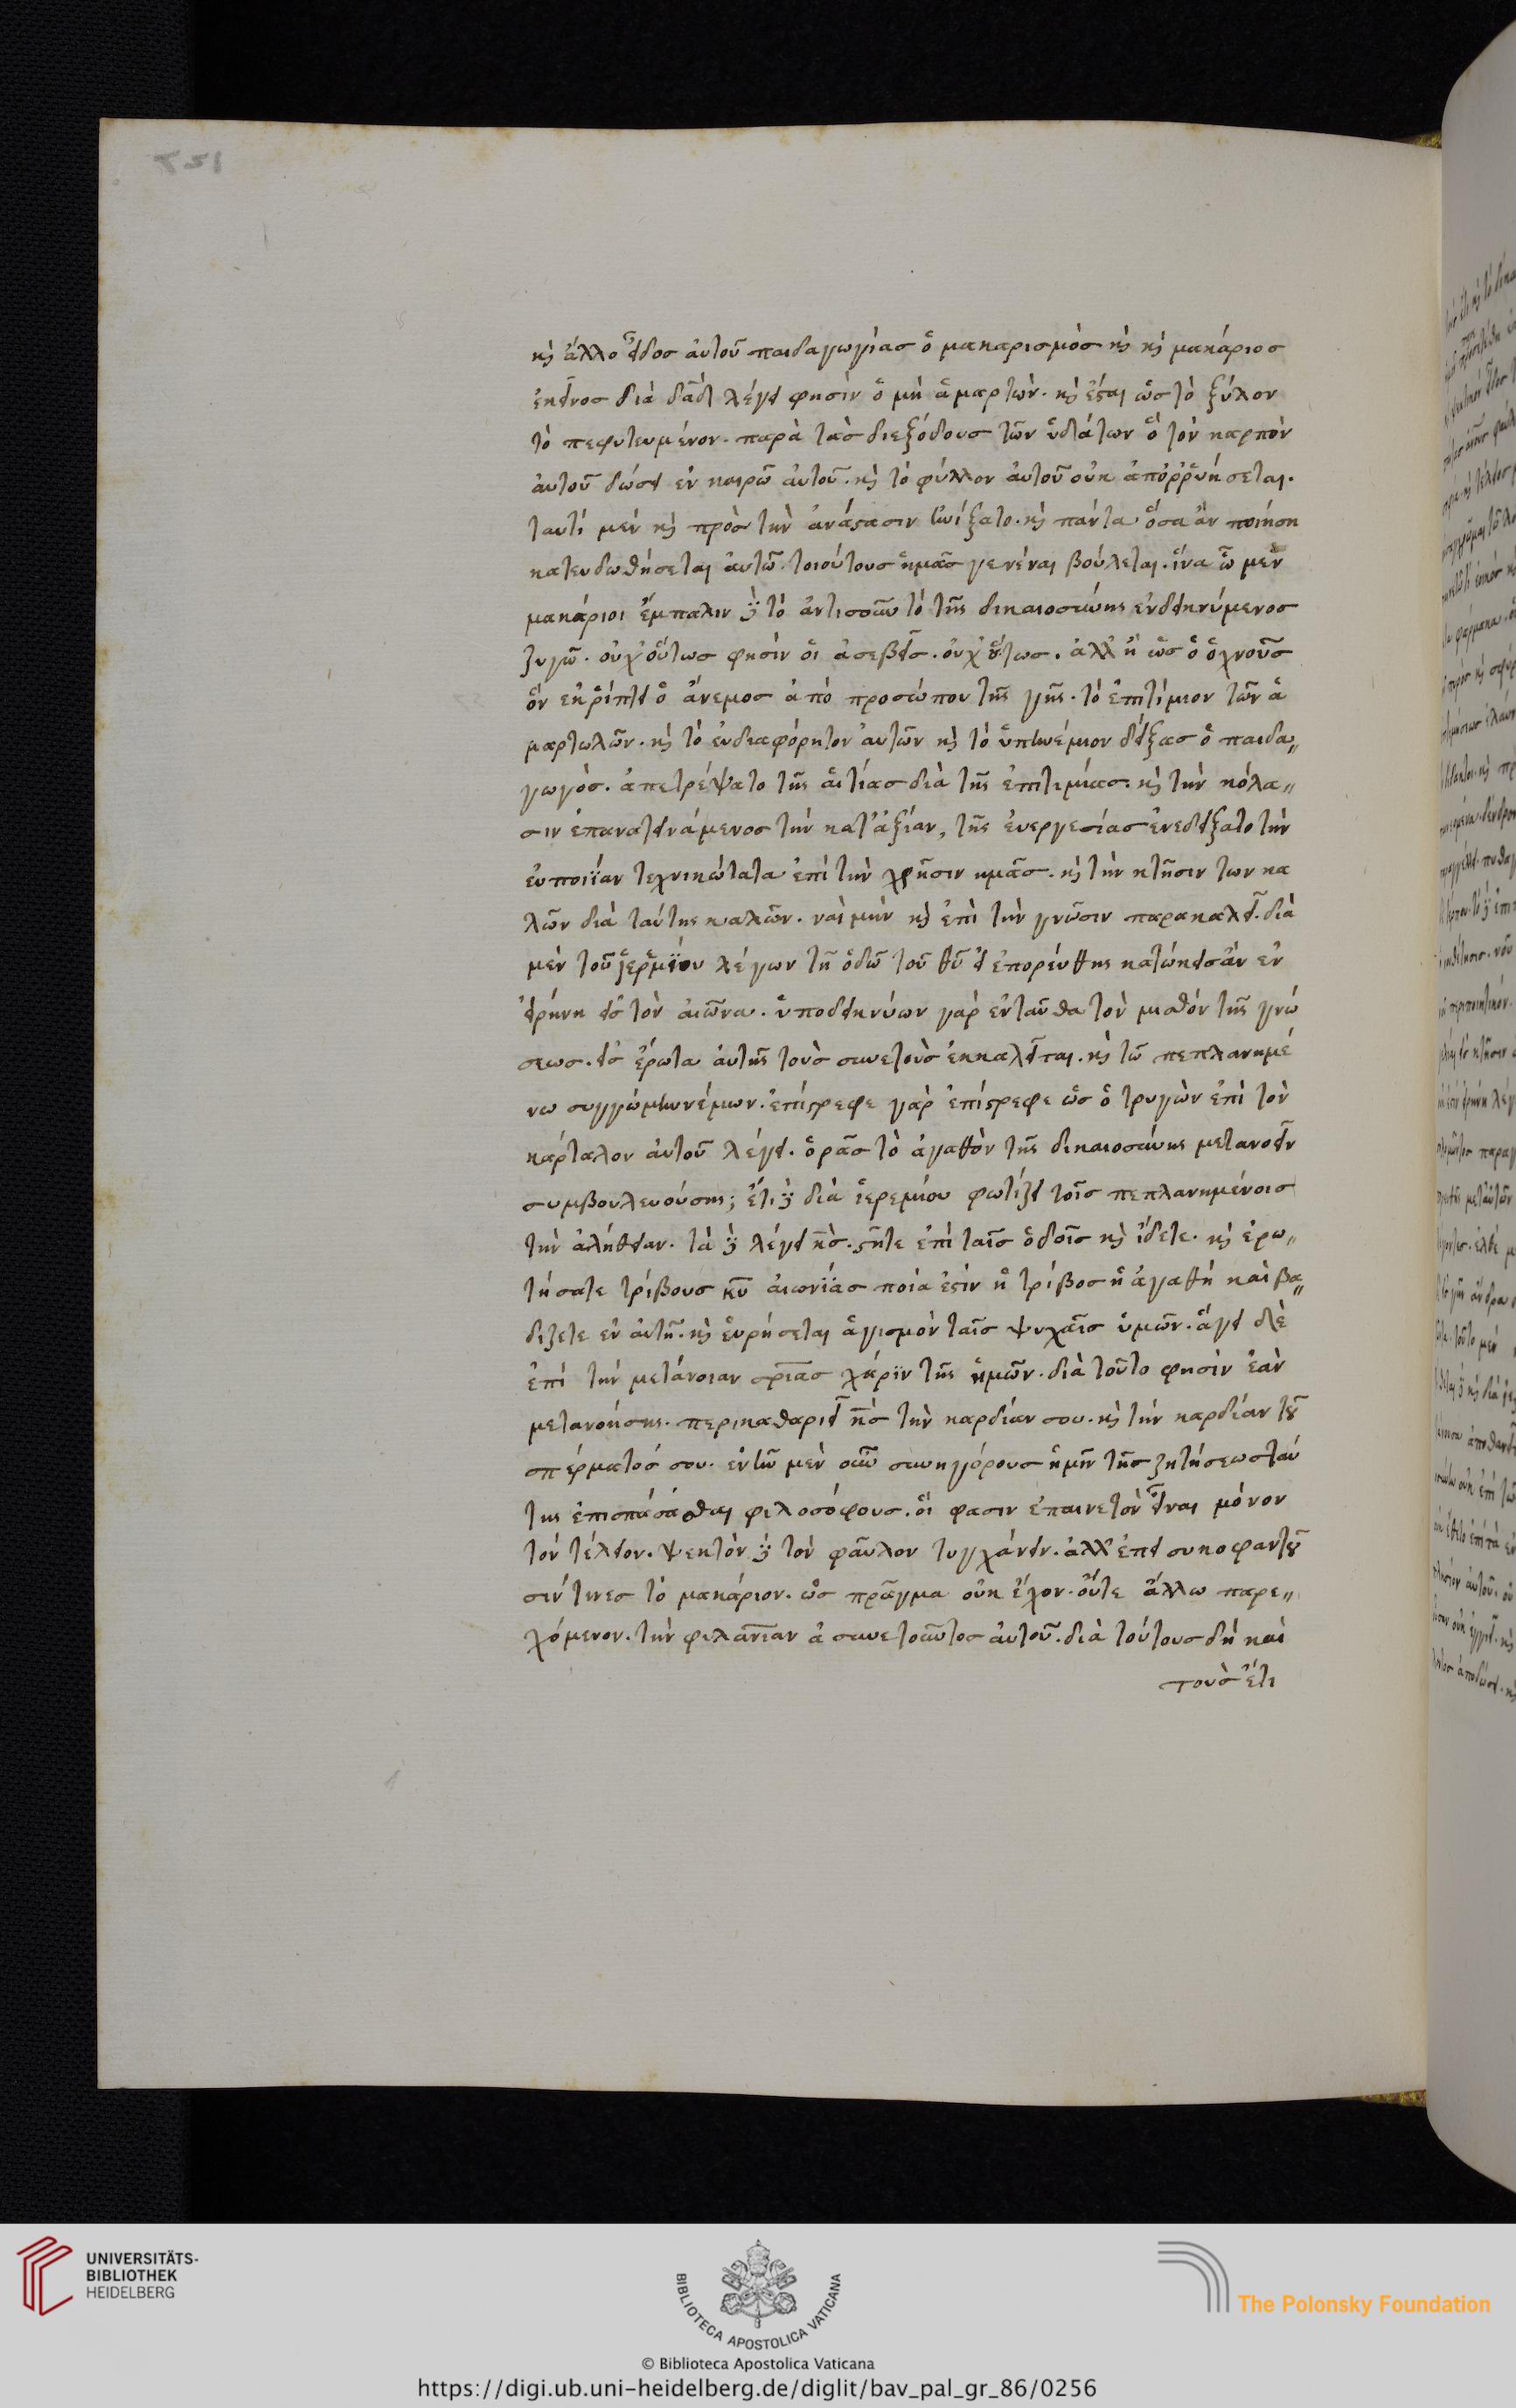 καὶ ἄλλο εἶδος αὐτοῦ παιδαγωγίας ὁ μακαρισμὸς καὶ καὶ μακάριος
ἐκεῖνος διὰ δαδ λέγει φησὶν ὁ μὴ ἁμαρτών. καὶ ἔσται ὡς τὸ ξύλον
τὸ πεφυτευμένον. παρὰ τὰς διεξόδους τῶν ὑδάτων ὃ τὸν καρπὸν
αὐτοῦ δώσει ἐν καιρῶ αὐτοῦ. καὶ τὸ φύλλον αὐτοῦ οὐκ ἀπορρυήσεται.
ταυτὶ μὲν καὶ πρὸς τὴν ἀνάστασιν ἠνίξατο. καὶ πάντα ὅσα ἂν ποίηση
κατευδωθήσεται αὐτῶ. τοιούτους ἡμᾶς γενέναι βούλεται. ἵνα ὦ μὲν
μακάριοι ἔμπαλιν δὲ τὸ ἀντισοῦν τὸ τῆς δικαιοσύνης ἐνδεικνύμενος
ζυγῶ. οὐχ οὕτως φησὶν οἱ ἀσεβεῖς. οὐχ οὕτως. ἀλλ ἢ ὡς ὁ ὁ χνοῦς
ὃν ἐκρίπτει ὁ ἄνεμος ἀπὸ προσώπου τῆς γῆς. τὸ ἐπιτίμιον τῶν ἁ
μαρτωλῶν. καὶ τὸ εὐδιαφόρητον αὐτῶν καὶ τὸ ὑπηνέμιον δείξας ὁ παιδα„
γωγὸς. ἀπετρέψατο τῆς αἰτίας διὰ τῆς ἐπιτιμίας. καὶ τὴν κόλα„
σιν ἐπανατεινάμενος τὴν κατ' ἀξίαν, τῆς εὐεργεσίας ἐνεδείξατο τὴν
εὐποιΐαν τεχνικώτατα ἐπὶ τὴν χρῆσιν ημᾶς. καὶ τὴν κτῆσιν των κα
λῶν διὰ ταύτης καλῶν. ναὶ μὴν καὶ ἐπὶ τὴν γνῶσιν παρακαλεῖ. διὰ
μὲν τοῦ ἱερεμΐου λέγων τῆ ὁδῶ τοῦ θῦ εἰ ἐπορεύθης κατώκεις ἂν ἐν
εἰρήνη εἰς τὸν αἰῶνα. ὑποδεικνύων γὰρ ἐνταῦθα τὸν μισθόν τῆς γνώ
σεως. εἰς ἔρωτα αὐτῆς τοὺς συνετοὺς ἐκκαλεῖται. καὶ τῶ πεπλανημέ
νω συγγώμην νέμων. ἐπίστρεφε γὰρ ἐπίστρεφε ὡς ὁ τρυγὼν ἐπὶ τὸν
κάρταλον αὐτοῦ λέγει. ὁρᾶς τὸ ἀγαθὸν τῆς δικαιοσύνης μετανοεῖν
συμβουλευούσης; ἔτι δὲ διὰ ἱερεμίου φωτίζει τοῖς πεπλανημένοις
τὴν ἀλήθειαν. τὰ δὲ λέγει κς. στῆτε ἐπὶ ταῖς ὁδοῖς καὶ ἴδετε. καὶ ἐρω„
τήσατε τρίβους κυ αἰωνΐας ποία ἐστὶν ἡ τρίβος ἡ ἀγαθή καὶ βα„
δίζετε ἐν αὐτῆ. καὶ εὑρήσεται ἁγισμὸν ταῖς ψυχαῖς ὑμῶν. ἄγει δὲ
ἐπὶ τὴν μετάνοιαν σριας χάριν τῆς ἡμῶν. διὰ τοῦτο φησὶν ἐὰν
μετανοήσης. περικαθαριεῖ κς τὴν καρδίαν σου. καὶ τὴν καρδίαν τοῦ
σπέρματός σου. ἐν τῶ μὲν οὖν συνηγόρους ἡμῖν τῆς ζητήσεως ταύ
της ἐπισπάσασθαι φιλοσόφους. οἵ φασιν ἐπαινετὸν εἶναι μόνον
τὸν τέλειον. ψεκτὸν δὲ τὸν φαῦλον τυγχάνειν. ἀλλ' ἐπεὶ συκοφαντοῦ
σίν τινες τὸ μακάριον. ὡς πρᾶγμα οὐκ ἔχον. οὔτε ἄλλω παρε„
χόμενον. τὴν φιλανιαν ἀ συνετοῦντος αὐτοῦ. διὰ τούτους δὴ καὶ
τοὺς ἔτι
UNIVERSITÄTS-
BIBLIOTHEK
HEIDELBERG
BIBLIOTECA APOSTOLICA VATICANA
The Polonsky Foundation
© Biblioteca Apostolica Vaticana
https://digi.ub.uni-heidelberg.de/diglit/bav_pal_gr_86/0256